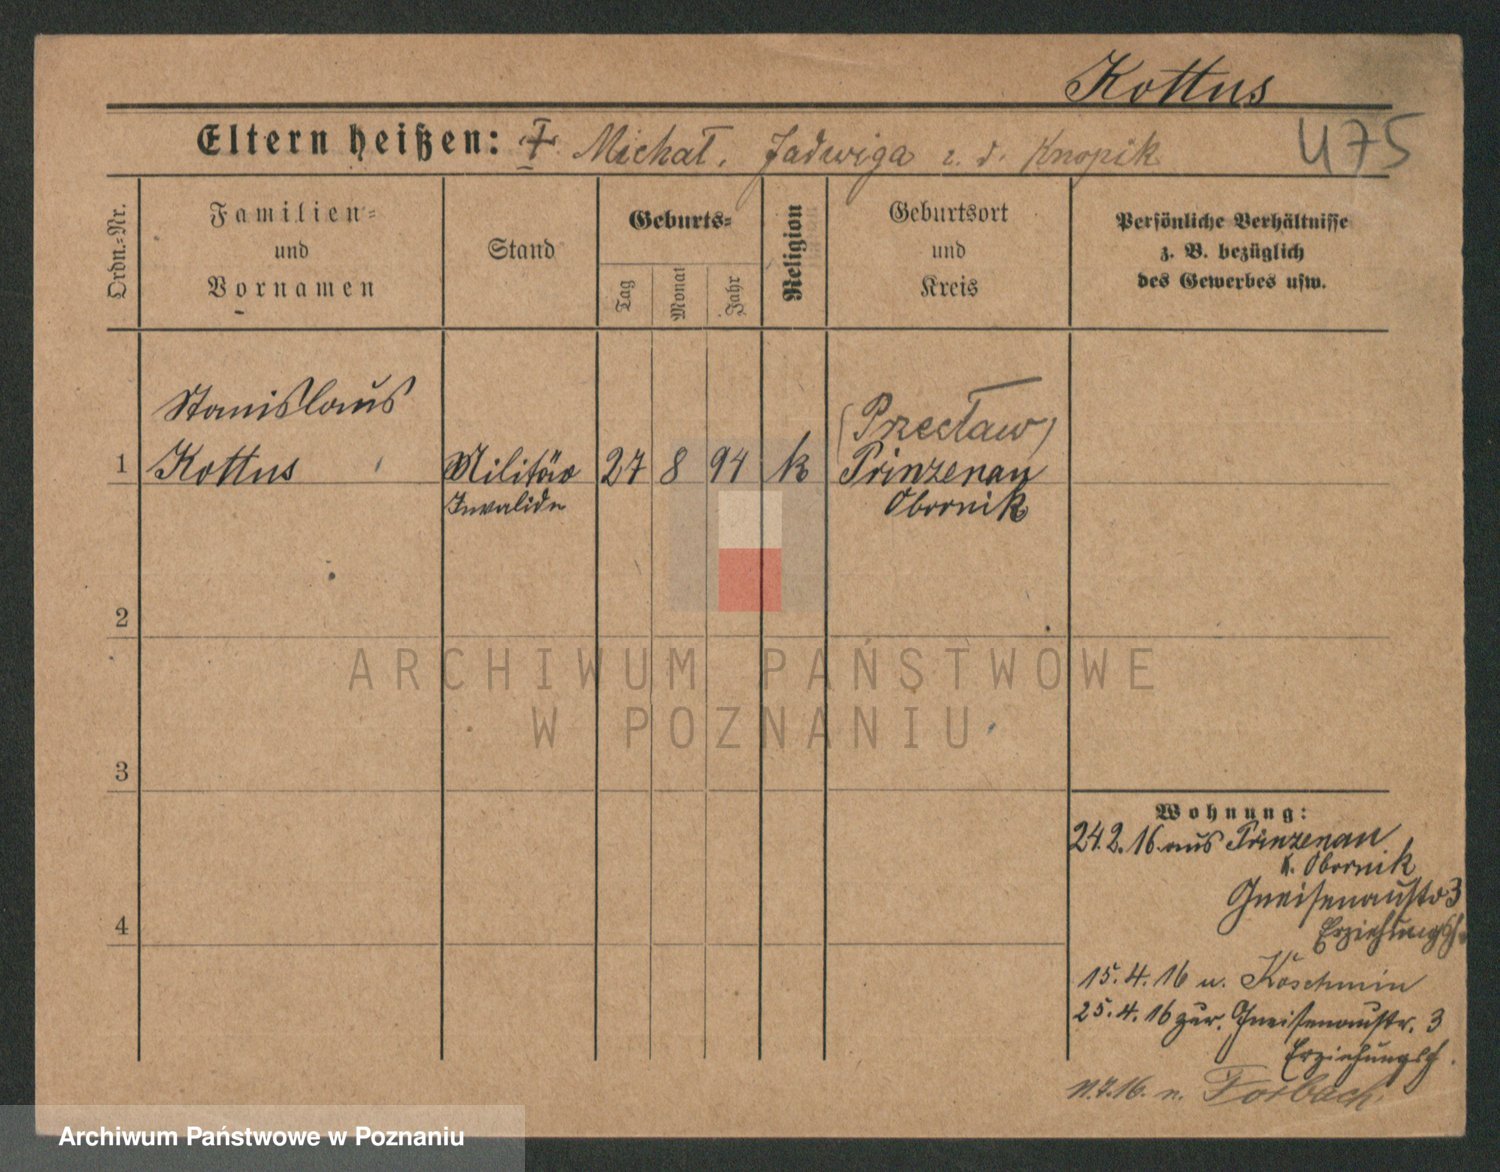 Kottus
Eltern heißen: † Michał, Jadwiga z. d. Knopik
475
Ordn.-Nr.
Familien-
und
Vornamen
Stand
Geburts-
Tag
Monat
Jahr
Religion
Geburtsort
und
Kreis
Persönliche Verhältnisse
z. B. bezüglich
des Gewerbes usw.
Stanislaus
1 Kottus Militär 27 8 94 k (Przecław) Prinzenau
Invalide Obornik
2
3
4
Wohnung:
24.2.16 aus Prinzenau
K. Obornik
Gneisenaustr 3
Erziehungsh.
15.4.16 n. Koschmin
25.4.16 zur. Gneisenaustr. 3
Erziehungsh.
11.7.16. n. Forbach.
ARCHIWUM PAŃSTWOWE
W POZNANIU
Archiwum Państwowe w Poznaniu